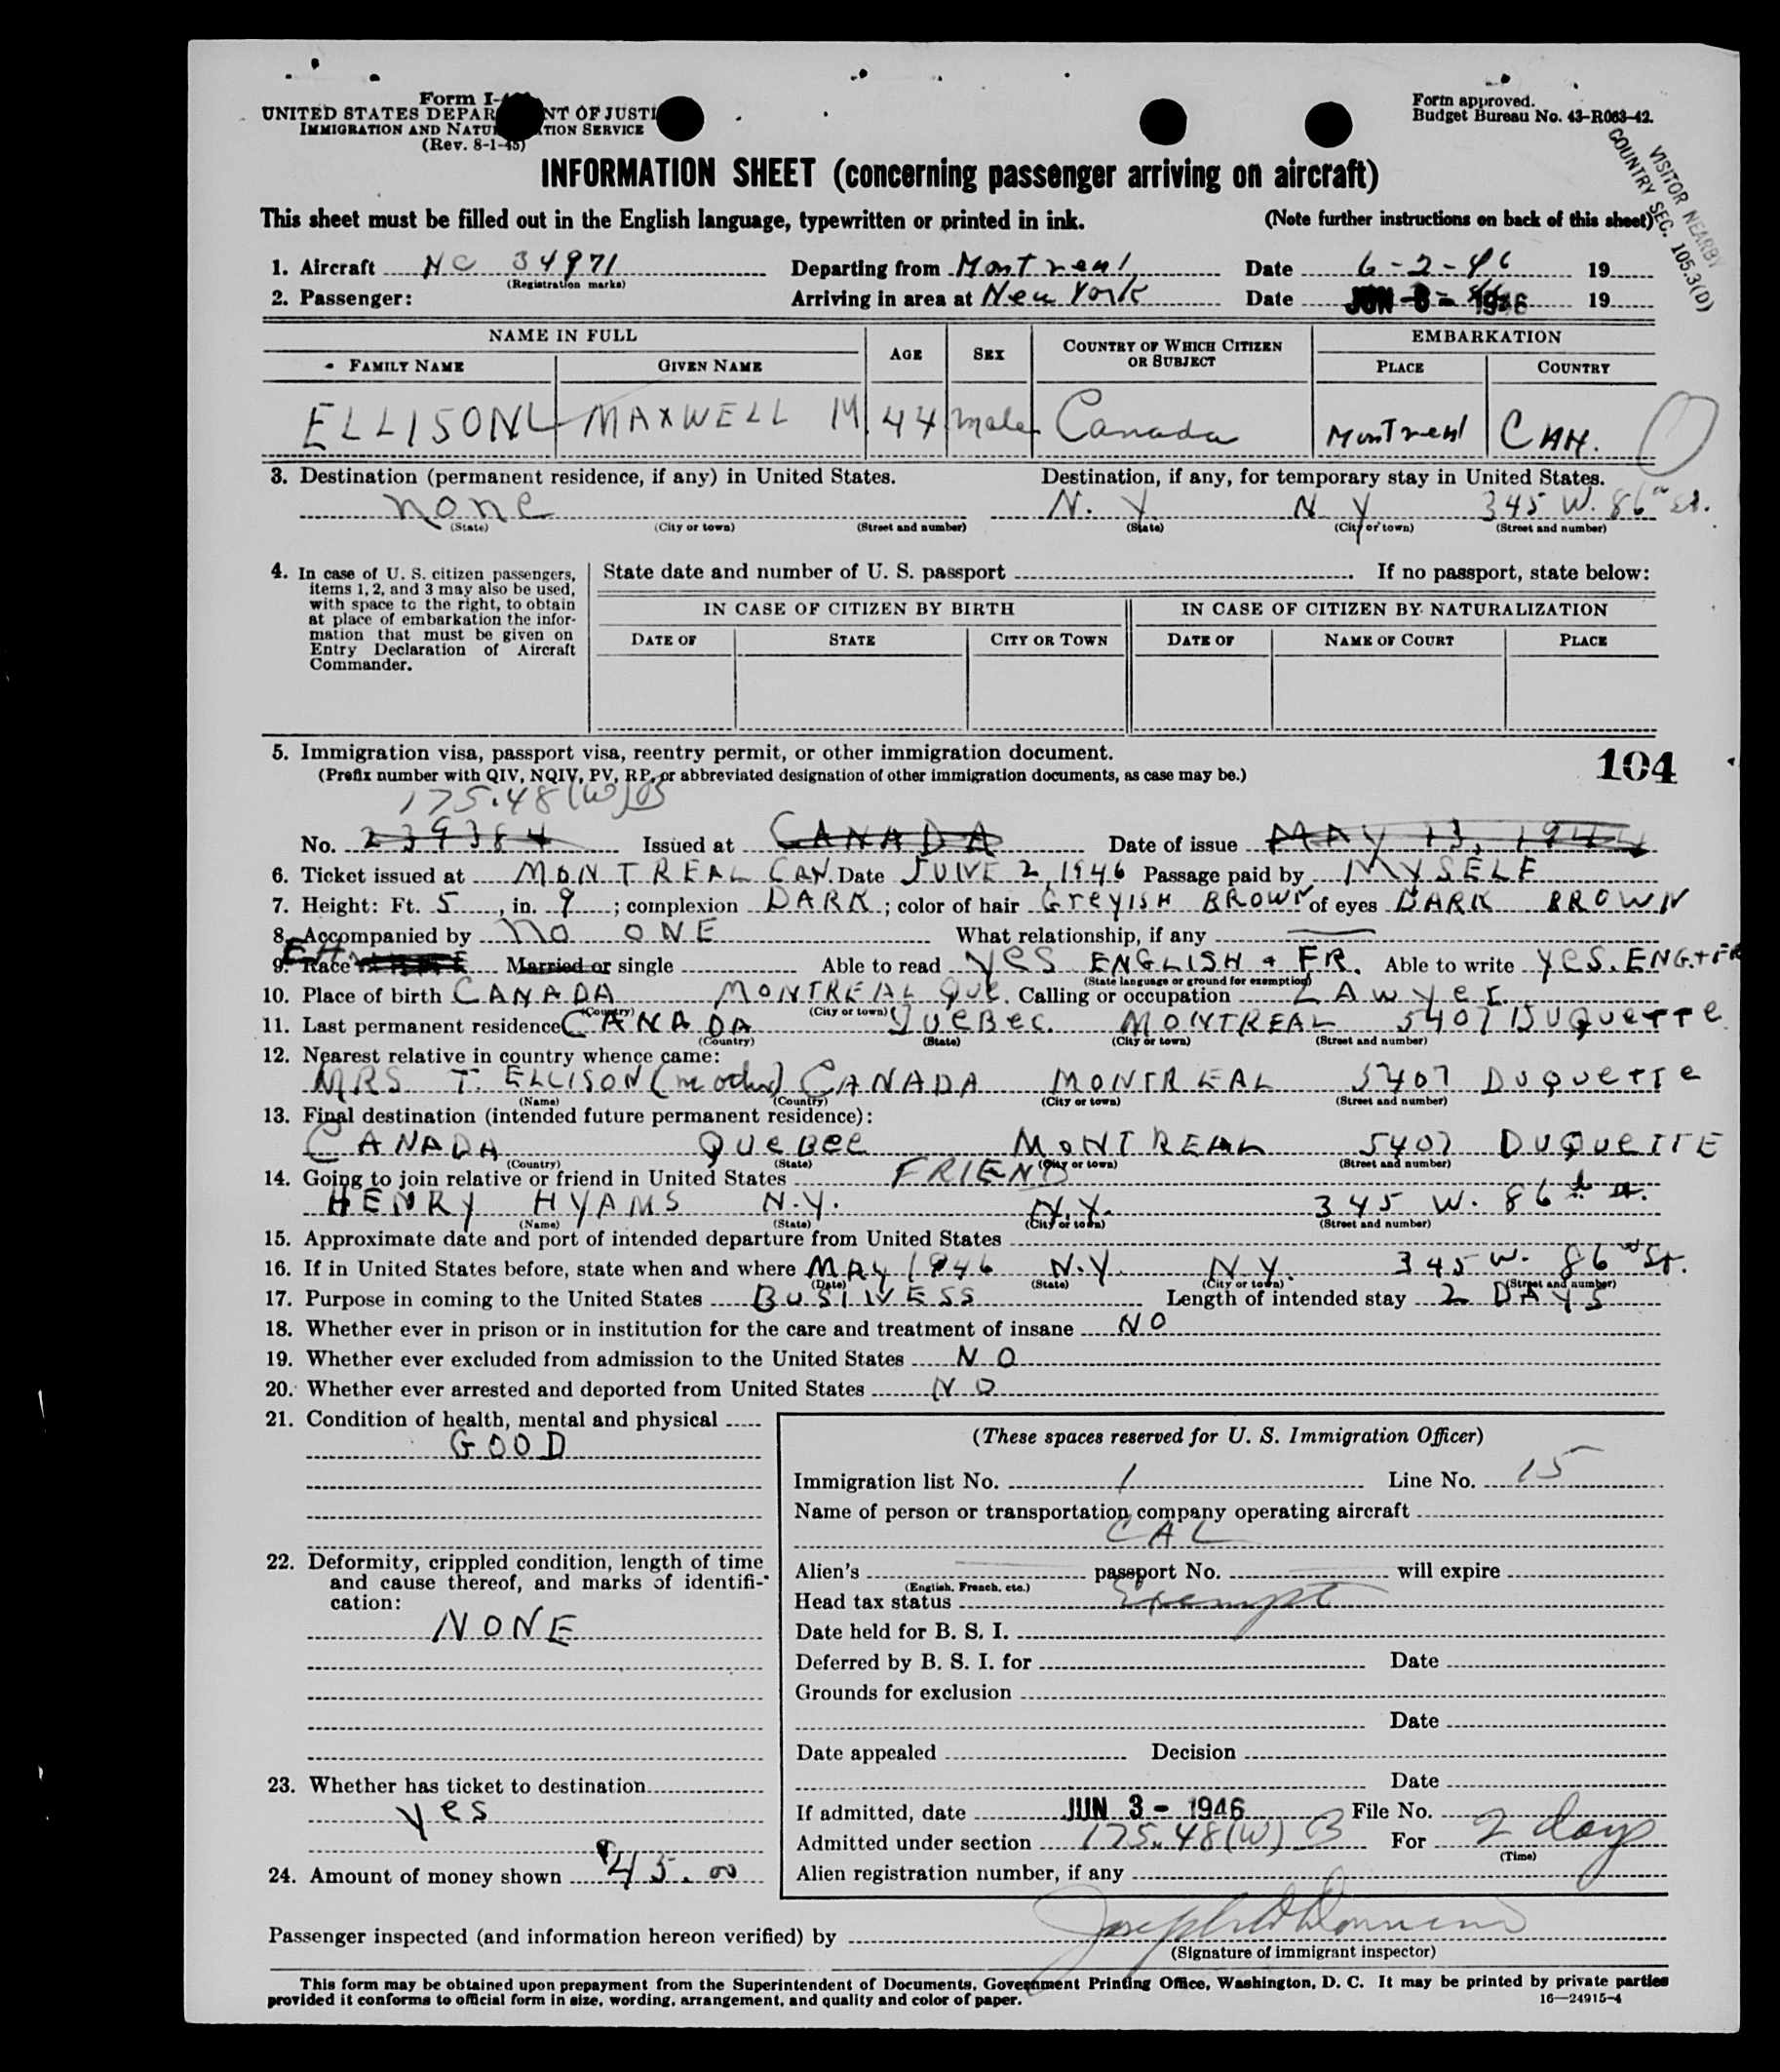 Form I-
UNITED STATES DEPAR NT OF JUSTI
IMMIGRATION AND NATU TION SERVICE
(Rev. 8-1-45)
Form approved.
Budget Bureau No. 43-R063-42.
VISITOR NEARBY
COUNTRY SEC. 105.3(D)
INFORMATION SHEET (concerning passenger arriving on aircraft)
This sheet must be filled out in the English language, typewritten or printed in ink. (Note further instructions on back of this sheet)
1. Aircraft NC 34971 Departing from Montreal Date 6-2-46 19
(Registration marks)
2. Passenger: Arriving in area at New York Date JUN 3 - 1946 19
NAME IN FULL AGE SEX COUNTRY OF WHICH CITIZEN OR SUBJECT EMBARKATION
FAMILY NAME GIVEN NAME PLACE COUNTRY
ELLISON MAXWELL M 44 male Canada Montreal CAN.
3. Destination (permanent residence, if any) in United States. Destination, if any, for temporary stay in United States.
none N. Y. N Y 345 W. 86th St.
(State) (City or town) (Street and number) (State) (City or town) (Street and number)
4. In case of U. S. citizen passengers, items 1, 2, and 3 may also be used, with space to the right, to obtain at place of embarkation the information that must be given on Entry Declaration of Aircraft Commander.
State date and number of U. S. passport If no passport, state below:
IN CASE OF CITIZEN BY BIRTH IN CASE OF CITIZEN BY NATURALIZATION
DATE OF STATE CITY OR TOWN DATE OF NAME OF COURT PLACE
5. Immigration visa, passport visa, reentry permit, or other immigration document. 104
(Prefix number with QIV, NQIV, PV, RP, or abbreviated designation of other immigration documents, as case may be.)
175.48(W)B
No. 239384 Issued at CANADA Date of issue MAY 13, 1944
6. Ticket issued at MONTREAL CAN. Date JUNE 2, 1946 Passage paid by MYSELF
7. Height: Ft. 5, in. 9; complexion DARK; color of hair GREYISH BROWN of eyes DARK BROWN
8. Accompanied by NO ONE What relationship, if any
9. Race Married or single Able to read YES ENGLISH + FR. Able to write YES. ENG. + FR
(State language or ground for exemption)
10. Place of birth CANADA MONTREAL QUE. Calling or occupation LAWYER
(Country) (City or town)
11. Last permanent residence CANADA QUEBEC. MONTREAL 5407 DUQUETTE
(Country) (State) (City or town) (Street and number)
12. Nearest relative in country whence came:
MRS T. ELLISON (mother) CANADA MONTREAL 5407 DUQUETTE
(Name) (Country) (City or town) (Street and number)
13. Final destination (intended future permanent residence):
CANADA QUEBEC MONTREAL 5407 DUQUETTE
(Country) (State) (City or town) (Street and number)
14. Going to join relative or friend in United States FRIEND
HENRY HYAMS N.Y. N.Y. 345 W. 86th St.
(Name) (State) (City or town) (Street and number)
15. Approximate date and port of intended departure from United States
16. If in United States before, state when and where MAY 1946 N.Y. N.Y. 345 W. 86th St.
(Date) (State) (City or town) (Street and number)
17. Purpose in coming to the United States BUSINESS Length of intended stay 2 DAYS
18. Whether ever in prison or in institution for the care and treatment of insane NO
19. Whether ever excluded from admission to the United States NO
20. Whether ever arrested and deported from United States NO
21. Condition of health, mental and physical
GOOD
22. Deformity, crippled condition, length of time
and cause thereof, and marks of identifi-
cation:
NONE
23. Whether has ticket to destination
yes
24. Amount of money shown $45.00
(These spaces reserved for U. S. Immigration Officer)
Immigration list No. 1 Line No. 15
Name of person or transportation company operating aircraft
CAL
Alien's passport No. will expire
(English, French, etc.)
Head tax status Exempt
Date held for B. S. I.
Deferred by B. S. I. for Date
Grounds for exclusion
Date
Date appealed Decision
Date
If admitted, date JUN 3 - 1946 File No.
Admitted under section 175.48(W) B For 2 days
(Time)
Alien registration number, if any
Passenger inspected (and information hereon verified) by
(Signature of immigrant inspector)
This form may be obtained upon prepayment from the Superintendent of Documents, Government Printing Office, Washington, D. C. It may be printed by private parties
provided it conforms to official form in size, wording, arrangement, and quality and color of paper. 16—24915-4